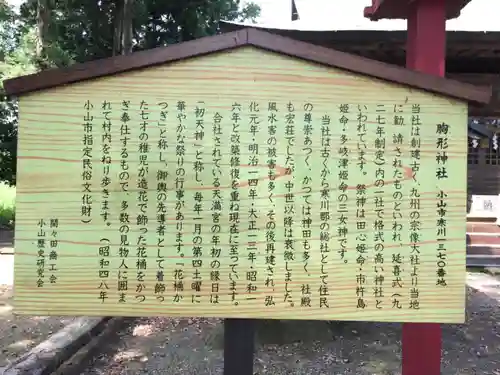 胸形神社　小山市寒川一三七〇番地
当社は創建の昔、九州の宗像大社より当地
に勧請されたものといわれ、延喜式（九
二七年制定）内の一社で格式の高い神社と
いわれています。祭神は田心姫命・市杵島
姫命・多岐津姫命の三女神です。
当社は古くから寒川郡の総社として住民
の尊崇あつく、かつては神田も多く、社殿
も宏荘でしたが、中世以降は衰微しました。
風水害の被害も多く、その後再建され、弘
化元年・明治一四年・大正一三年・昭和一
六年と改築修復を重ね現在に至っています。
合社されている天満宮の年初の縁日は
「初天神」と称し、毎年一月の第四土曜に
華やかな祭りの行事があります。「花桶か
つぎ」と称し、御輿の先導者として着飾っ
た七才の稚児が造花で飾った花桶をかつ
ぎ奉仕するもので、多数の見物人に囲ま
れて村内をねり歩きます。（昭和四八年
小山市指定民俗文化財）
間々田商工会
小山歴史研究会